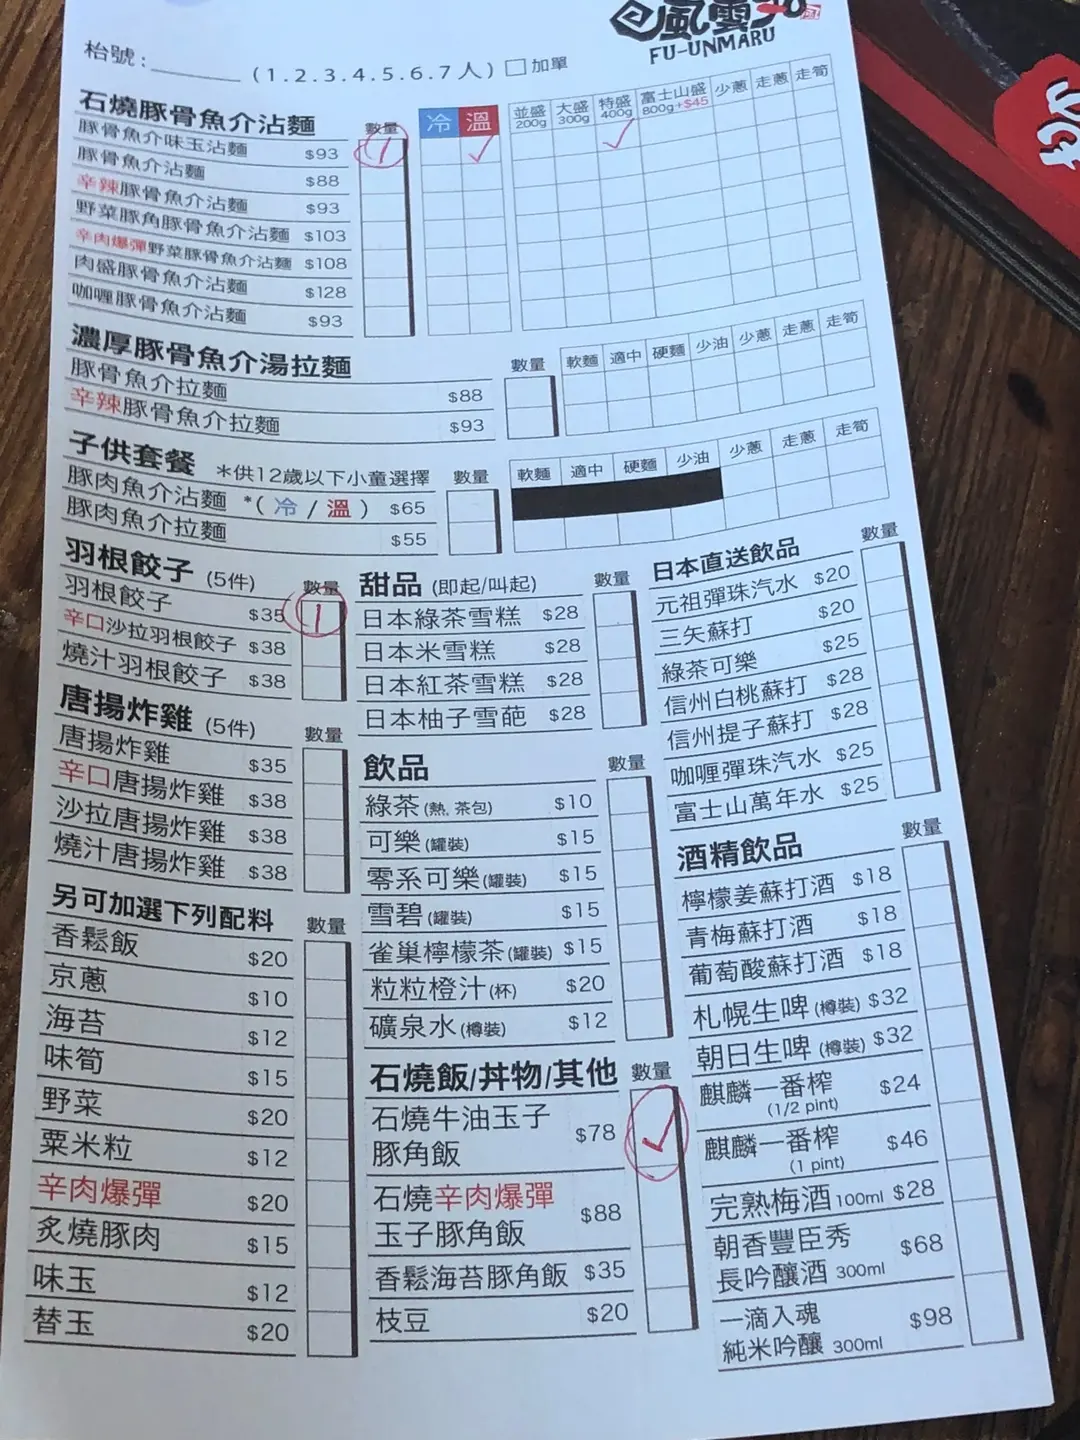 風雲丸
FU-UNMARU
枱號: (1.2.3.4.5.6.7人) □加單
石燒豚骨魚介沾麵 數量 冷 溫 並盛200g 大盛300g 特盛400g 富士山盛800g+$45 少蔥 走蔥 走筍
豚骨魚介味玉沾麵 $93 1 ✓ ✓
豚骨魚介沾麵 $88
辛辣豚骨魚介沾麵 $93
野菜豚角豚骨魚介沾麵 $103
辛肉爆彈野菜豚骨魚介沾麵 $108
肉盛豚骨魚介沾麵 $128
咖喱豚骨魚介沾麵 $93
濃厚豚骨魚介湯拉麵 數量 軟麵 適中 硬麵 少油 少蔥 走蔥 走筍
豚骨魚介拉麵 $88
辛辣豚骨魚介拉麵 $93
子供套餐 *供12歲以下小童選擇 數量 軟麵 適中 硬麵 少油 少蔥 走蔥 走筍
豚肉魚介沾麵 *(冷/溫) $65
豚肉魚介拉麵 $55
羽根餃子 (5件) 數量
羽根餃子 $35 1
辛口沙拉羽根餃子 $38
燒汁羽根餃子 $38
唐揚炸雞 (5件) 數量
唐揚炸雞 $35
辛口唐揚炸雞 $38
沙拉唐揚炸雞 $38
燒汁唐揚炸雞 $38
另可加選下列配料 數量
香鬆飯 $20
京蔥 $10
海苔 $12
味筍 $15
野菜 $20
粟米粒 $12
辛肉爆彈 $20
炙燒豚肉 $15
味玉 $12
替玉 $20
甜品 (即起/叫起) 數量
日本綠茶雪糕 $28
日本米雪糕 $28
日本紅茶雪糕 $28
日本柚子雪葩 $28
飲品 數量
綠茶(熱, 茶包) $10
可樂(罐裝) $15
零系可樂(罐裝) $15
雪碧(罐裝) $15
雀巢檸檬茶(罐裝) $15
粒粒橙汁(杯) $20
礦泉水(樽裝) $12
石燒飯/丼物/其他 數量
石燒牛油玉子
豚角飯 $78 ✓
石燒辛肉爆彈
玉子豚角飯 $88
香鬆海苔豚角飯 $35
枝豆 $20
日本直送飲品 數量
元祖彈珠汽水 $20
三矢蘇打 $20
綠茶可樂 $25
信州白桃蘇打 $28
信州提子蘇打 $28
咖喱彈珠汽水 $25
富士山萬年水 $25
酒精飲品 數量
檸檬姜蘇打酒 $18
青梅蘇打酒 $18
葡萄酸蘇打酒 $18
札幌生啤(樽裝) $32
朝日生啤(樽裝) $32
麒麟一番榨 $24
(1/2 pint)
麒麟一番榨 $46
(1 pint)
完熟梅酒100ml $28
朝香豐臣秀
長吟釀酒 300ml $68
一滴入魂
純米吟釀 300ml $98